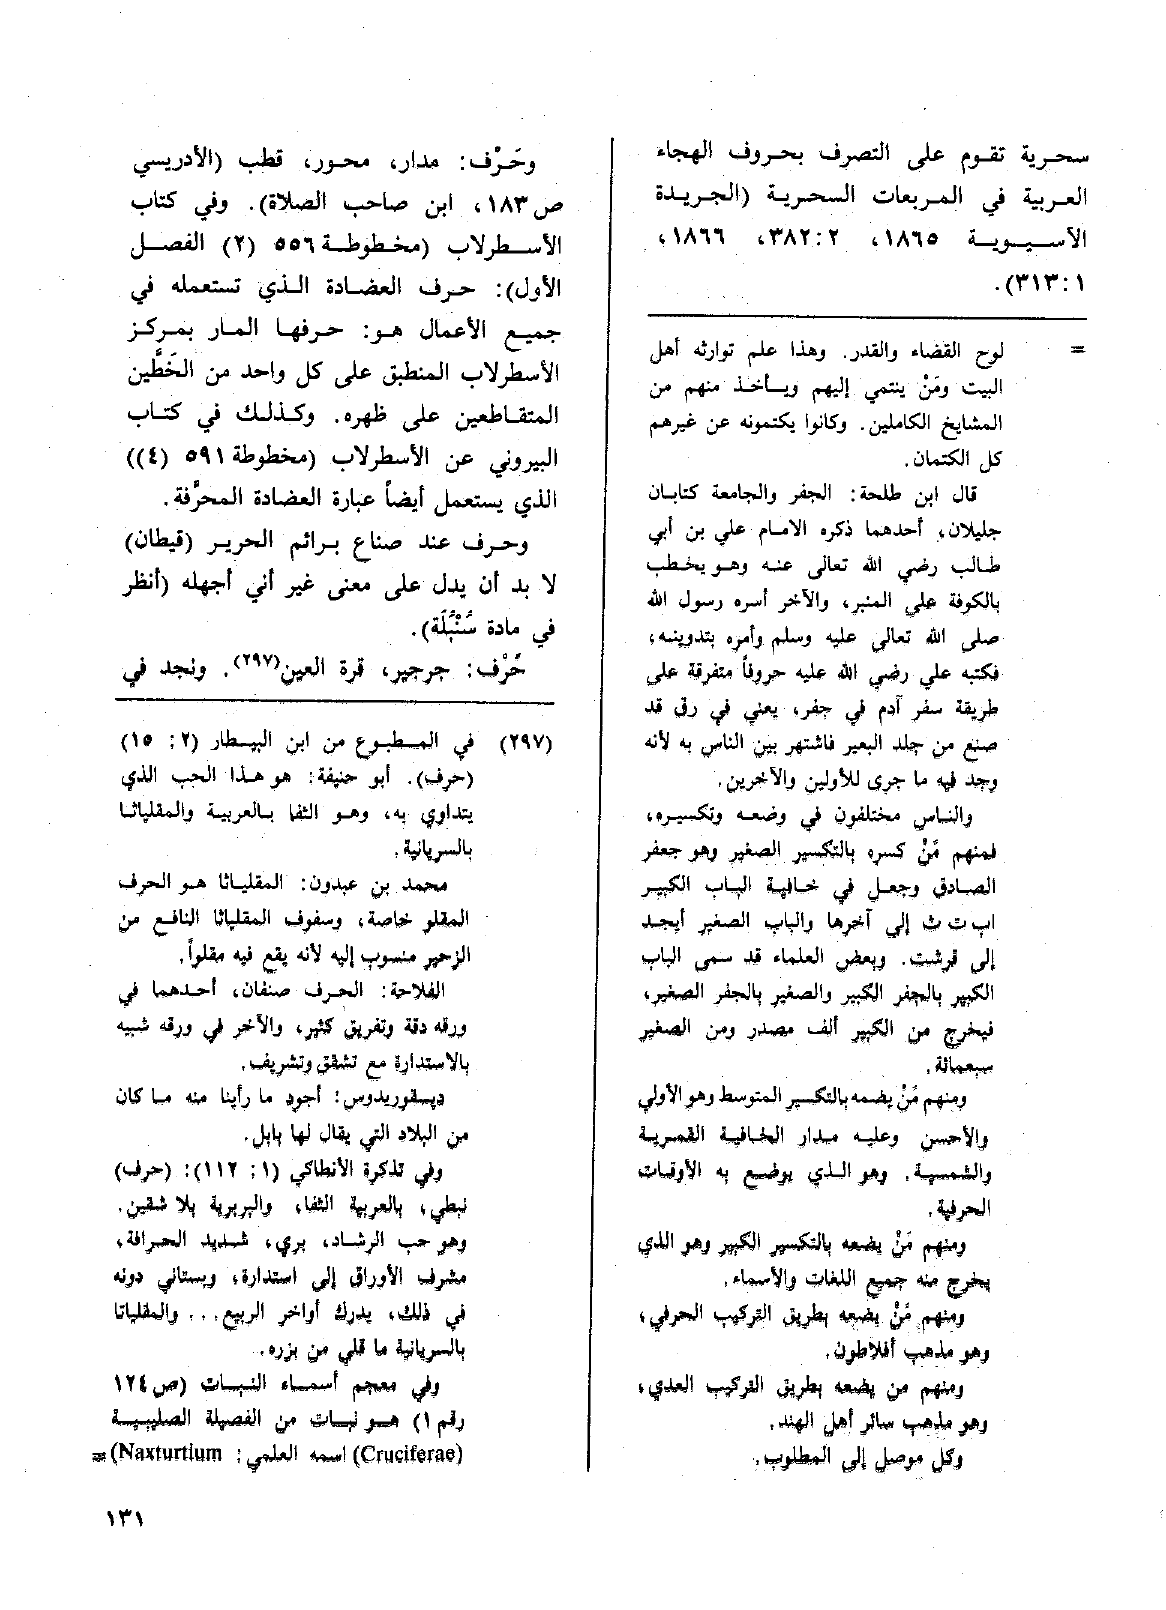 سحرية تقوم على التصرف بحروف الهجاء
العربية في المربعات السحرية (الجريدة
الآسيوية ١٨٦٥، ٢:٣٨٢، ١٨٦٦،
١:٣١٣).
= لوح القضاء والقدر. وهذا علم توارثه أهل
البيت ومَنْ ينتمي إليهم ويأخذ منهم من
المشايخ الكاملين. وكانوا يكتمونه عن غيرهم
كل الكتمان.
قال ابن طلحة: الجفر والجامعة كتابان
جليلان، أحدهما ذكره الامام علي بن أبي
طالب رضي الله تعالى عنه وهو يخطب
بالكوفة على المنبر، والآخر أسره رسول الله
صلى الله تعالى عليه وسلم وأمره بتدوينه،
فكتبه علي رضي الله عليه حروفاً متفرقة على
طريقة سفر آدم في جفر، يعني في رق قد
صنع من جلد البعير فاشتهر بين الناس به لأنه
وجد فيه ما جرى للأولين والآخرين.
والناس مختلفون في وضعه وتكسيره،
فمنهم مَنْ كسره بالتكسير الصغير وهو جعفر
الصادق وجعل في خافية الباب الكبير
اب ت ث إلى آخرها والباب الصغير أبجد
إلى قرشت. وبعض العلماء قد سمى الباب
الكبير بالجفر الكبير والصغير بالجفر الصغير،
فيخرج من الكبير ألف مصدر ومن الصغير
سبعمائة.
ومنهم مَنْ يضمه بالتكسير المتوسط وهو الأولى
والأحسن وعليه مدار الخافية القمرية
والشمسية. وهو الذي يوضع به الأوقات
الحرفية.
ومنهم مَنْ يضعه بالتكسير الكبير وهو الذي
يخرج منه جميع اللغات والأسماء.
ومنهم مَنْ يضعه بطريق التركيب الحرفي،
وهو مذهب أفلاطون.
ومنهم من يضعه بطريق التركيب العدي،
وهو مذهب سائر أهل الهند.
وكل موصل إلى المطلوب.
وحَرْف: مدار، محور، قطب (الأدريسي
ص١٨٣، ابن صاحب الصلاة). وفي كتاب
الأسطرلاب (مخطوطة ٥٥٦ (٢) الفصل
الأول): حرف العضادة الذي تستعمله في
جميع الأعمال هو: حرفها المار بمركز
الأسطرلاب المنطبق على كل واحد من الخَطَّين
المتقاطعين على ظهره. وكذلك في كتاب
البيروني عن الأسطرلاب (مخطوطة ٥٩١ (٤))
الذي يستعمل أيضاً عبارة العضادة المحرَّفة.
وحرف عند صناع برائم الحرير (قيطان)
لا بد أن يدل على معنى غير أني أجهله (أنظر
في مادة سُنْبُلَة).
حُرْف: جرجير، قرة العين(٢٩٧). ونجد في
(٢٩٧) في المطبوع من ابن البيطار (٢: ١٥)
(حرف). أبو حنيفة: هو هذا الحب الذي
يتداوي به، وهو الثفا بالعربية والمقلياثا
بالسريانية.
محمد بن عبدون: المقلياثا هو الحرف
المقلو خاصة، وسفوف المقلياثا النافع من
الزحير منسوب إليه لأنه يقع فيه مقلواً.
الفلاحة: الحرف صنفان، أحدهما في
ورقه دقة وتفريق كثير، والآخر في ورقه شبيه
بالاستدارة مع تشقق وتشريف.
ديسقوريدوس: أجود ما رأينا منه ما كان
من البلاد التي يقال لها بابل.
وفي تذكرة الأنطاكي (١: ١١٢): (حرف)
نبطي، بالعربية الثفا، والبربرية بلا شقين.
وهو حب الرشاد، بري، شديد الحرافة،
مشرف الأوراق إلى استدارة، وبستاني دونه
في ذلك، يدرك أواخر الربيع... والمقلياتا
بالسريانية ما قلي من بزره.
وفي معجم أسماء النبات (ص١٢٤
رقم ١) هو نبات من الفصيلة الصليبية
(Cruciferae) اسمه العلمي: Naxturtium) =
١٣١